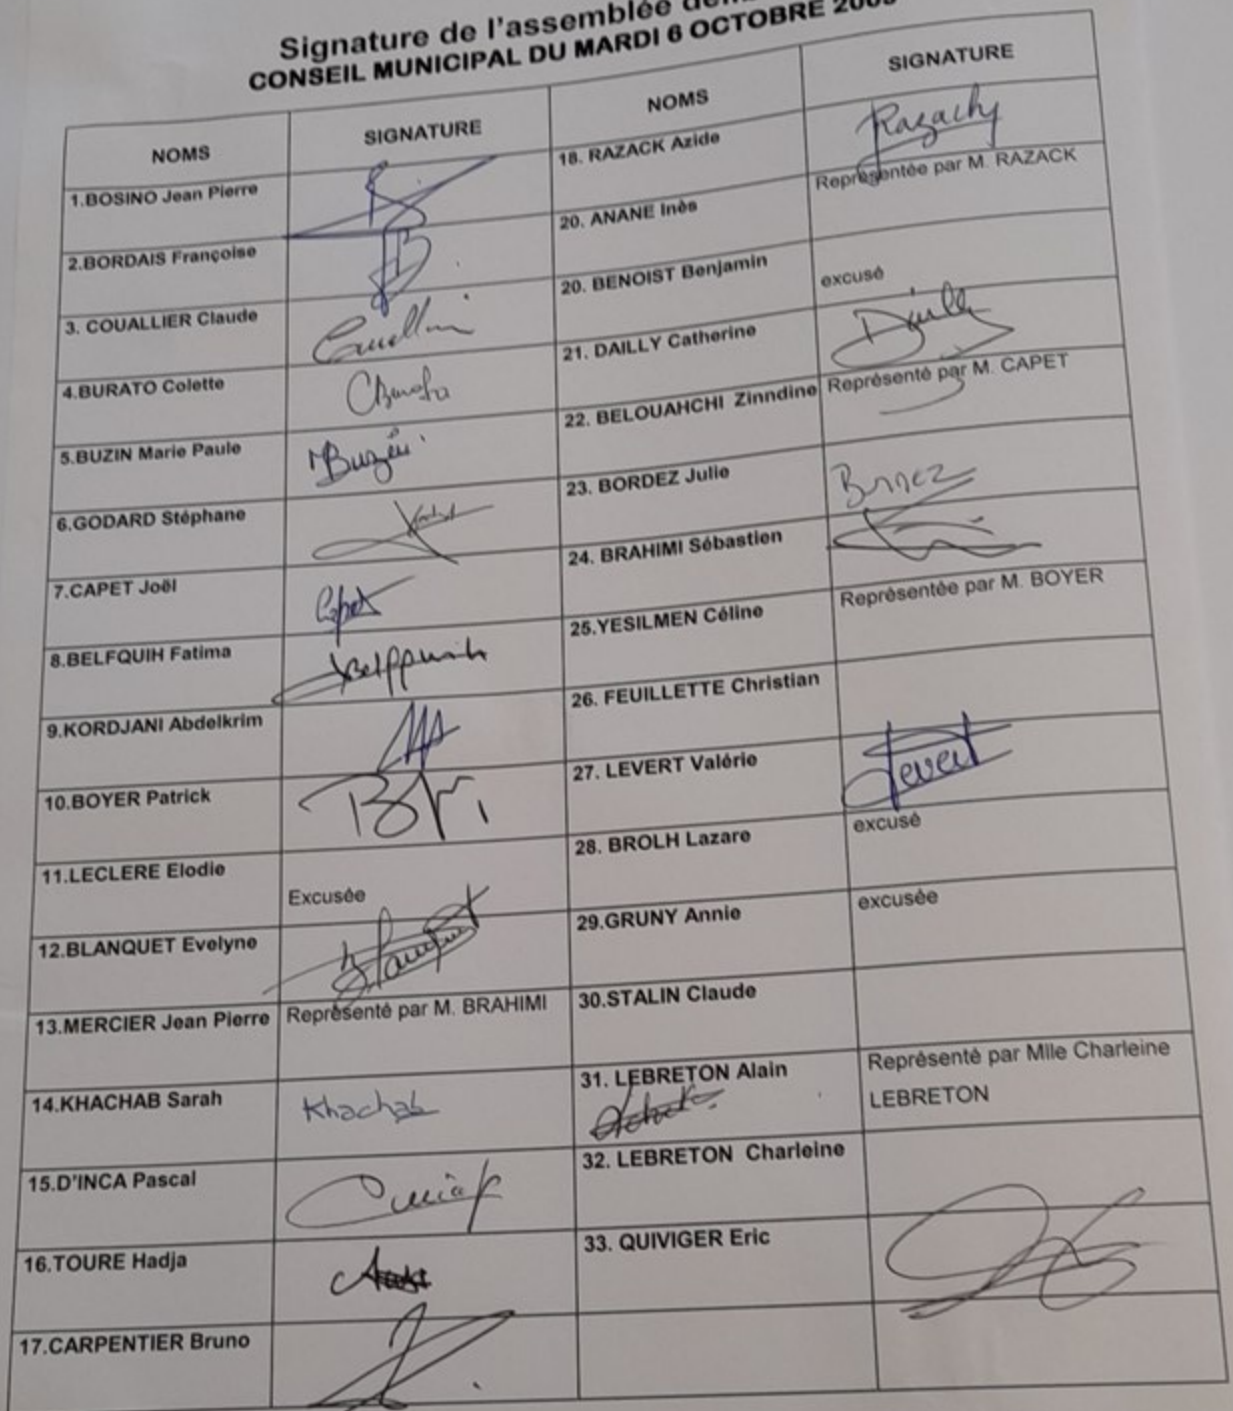 Signature de l'assemblée
CONSEIL MUNICIPAL DU MARDI 6 OCTOBRE
NOMS SIGNATURE NOMS SIGNATURE
1.BOSINO Jean Pierre
18. RAZACK Azide Razachy
2.BORDAIS Françoise
20. ANANE Inès Représentée par M. RAZACK
3. COUALLIER Claude
20. BENOIST Benjamin excusé
4.BURATO Colette
21. DAILLY Catherine Dailly
5.BUZIN Marie Paule MBuzin
22. BELOUAHCHI Zinndine Représenté par M. CAPET
6.GODARD Stéphane
23. BORDEZ Julie
7.CAPET Joël Capet
24. BRAHIMI Sébastien
8.BELFQUIH Fatima
25.YESILMEN Céline Représentée par M. BOYER
9.KORDJANI Abdelkrim
26. FEUILLETTE Christian
10.BOYER Patrick
27. LEVERT Valérie Levert
11.LECLERE Elodie Excusée
28. BROLH Lazare excusé
12.BLANQUET Evelyne
29.GRUNY Annie excusée
13.MERCIER Jean Pierre Représenté par M. BRAHIMI
30.STALIN Claude
14.KHACHAB Sarah Khachab
31. LEBRETON Alain Représenté par Mlle Charleine
LEBRETON
15.D'INCA Pascal
32. LEBRETON Charleine
16.TOURE Hadja
33. QUIVIGER Eric
17.CARPENTIER Bruno